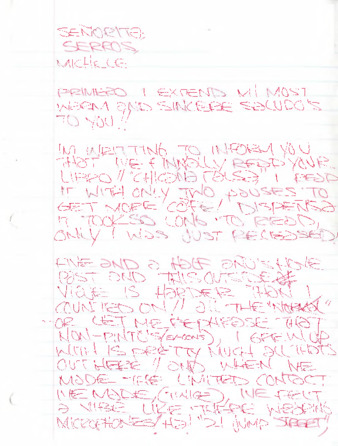 SEÑORITA:
SERROS,
MICHELE:
PRIMERO I EXTEND MI MOST
WARM AND SINCERE SALUDO'S
TO YOU!!
I'M WRITTING TO INFORM YOU
THAT I'VE FINNALLY READ YOUR
LIBRO // "CHICANA FALSA" I READ
IT WITH ONLY TWO PAUSES TO
GET MORE CAFE! DISPENSA
IT TOOK SO LONG TO READ
ONLY I WAS JUST RELEASED!
FIVE AND A HALF ANU'S HAVE
PAST AND THIS OUTSIDE
IS HARDER THAN I
COUNTED ON // ALL THE "NORMAL"
OR LET ME REPHRASE THAT
NON-PINTO'S I GREW UP
WITH IS PRETTY MUCH ALL THAT'S
OUT HERE // AND WHEN WE
MADE THE LIMITED CONTACT
WE MADE (TWICE), WE FELT
A VIBE LIKE THEY'RE WEARING
MICROPHONES, HA! "21 JUMP STREET)